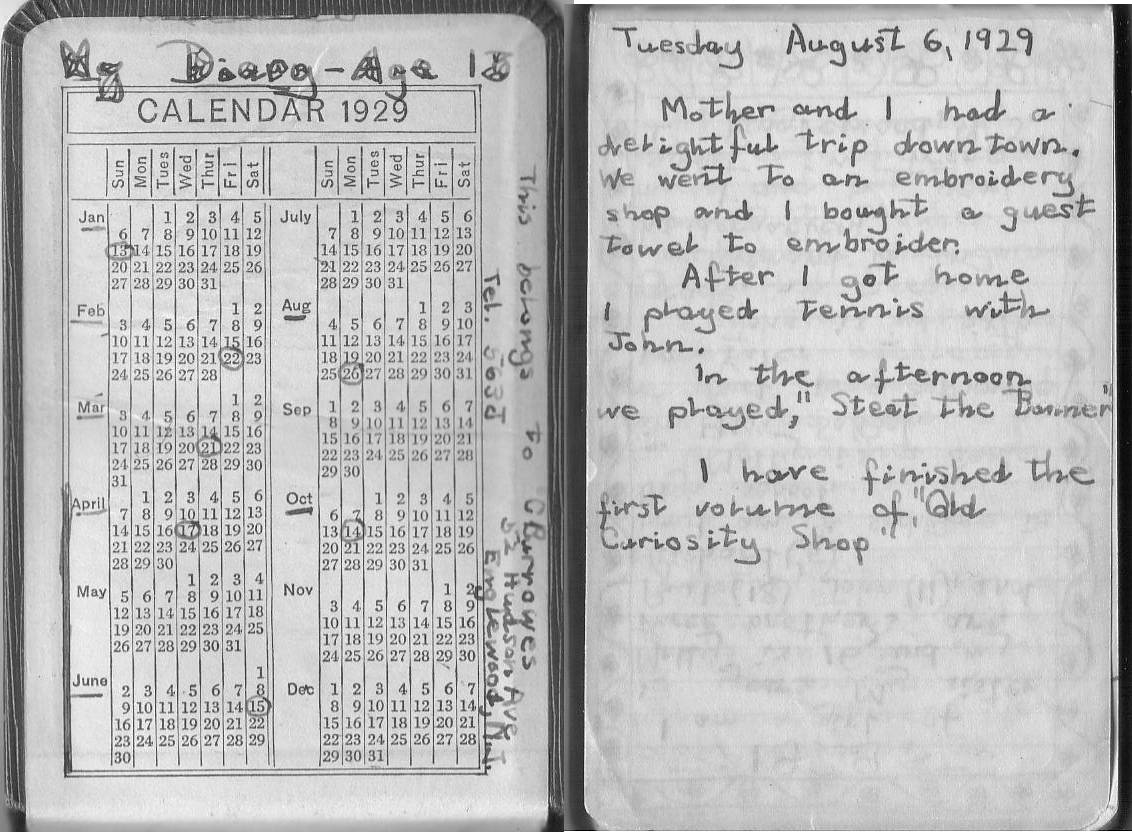 My Diary - Age 13
CALENDAR 1929
Sun Mon Tues Wed Thur Fri Sat
Jan
1 2 3 4 5
6 7 8 9 10 11 12
13 14 15 16 17 18 19
20 21 22 23 24 25 26
27 28 29 30 31
Feb
1 2
3 4 5 6 7 8 9
10 11 12 13 14 15 16
17 18 19 20 21 22 23
24 25 26 27 28
Mar
1 2
3 4 5 6 7 8 9
10 11 12 13 14 15 16
17 18 19 20 21 22 23
24 25 26 27 28 29 30
31
April
1 2 3 4 5 6
7 8 9 10 11 12 13
14 15 16 17 18 19 20
21 22 23 24 25 26 27
28 29 30
May
1 2 3 4
5 6 7 8 9 10 11
12 13 14 15 16 17 18
19 20 21 22 23 24 25
26 27 28 29 30 31
June
1
2 3 4 5 6 7 8
9 10 11 12 13 14 15
16 17 18 19 20 21 22
23 24 25 26 27 28 29
30
Sun Mon Tues Wed Thur Fri Sat
July
1 2 3 4 5 6
7 8 9 10 11 12 13
14 15 16 17 18 19 20
21 22 23 24 25 26 27
28 29 30 31
Aug
1 2 3
4 5 6 7 8 9 10
11 12 13 14 15 16 17
18 19 20 21 22 23 24
25 26 27 28 29 30 31
Sep
1 2 3 4 5 6 7
8 9 10 11 12 13 14
15 16 17 18 19 20 21
22 23 24 25 26 27 28
29 30
Oct
1 2 3 4 5
6 7 8 9 10 11 12
13 14 15 16 17 18 19
20 21 22 23 24 25 26
27 28 29 30 31
Nov
1 2
3 4 5 6 7 8 9
10 11 12 13 14 15 16
17 18 19 20 21 22 23
24 25 26 27 28 29 30
Dec
1 2 3 4 5 6 7
8 9 10 11 12 13 14
15 16 17 18 19 20 21
22 23 24 25 26 27 28
29 30 31
This belongs to C Burrowes
52 Hudson Ave
Englewood, N.J.
Tel.
Tuesday August 6, 1929
Mother and I had a
delightful trip downtown.
We went to an embroidery
shop and I bought a guest
towel to embroider.
After I got home
I played tennis with
John.
In the afternoon
we played," Steal the Banner"
I have finished the
first volume of "Old
Curiosity Shop"